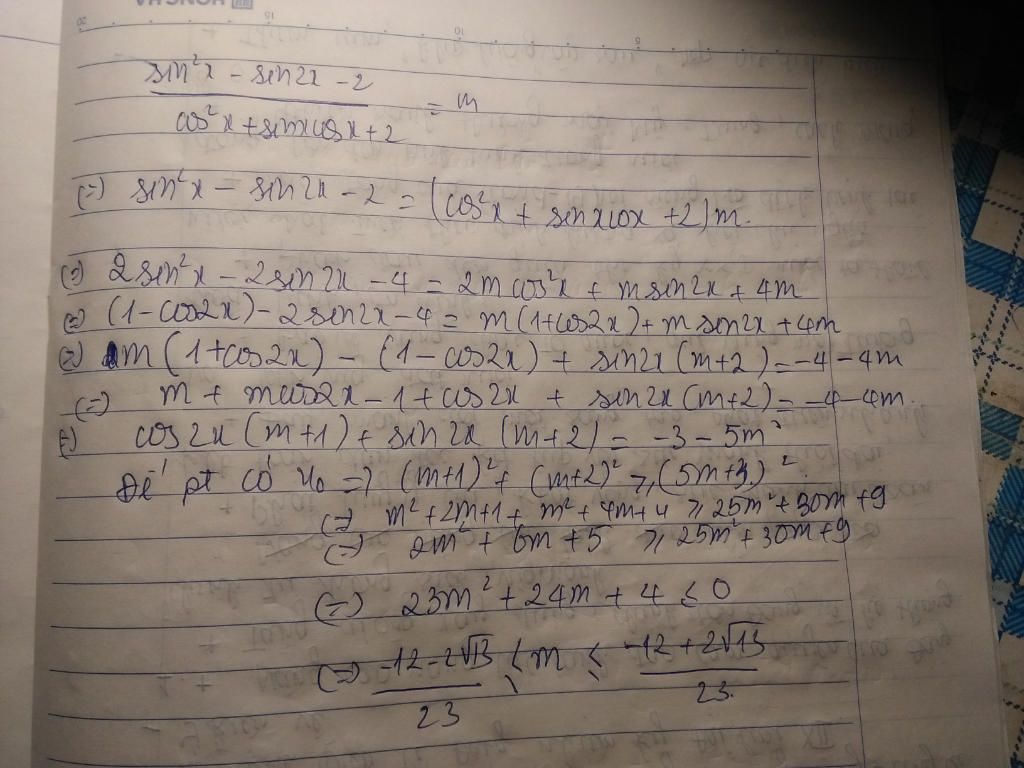 sin²x - sin2x - 2
cos²x + sinxcosx + 2
= m
(=) sin²x - sin2x - 2 = (cos²x + sinxcosx + 2)m.
(=) 2sin²x - 2sin2x - 4 = 2mcos²x + msin2x + 4m
(=) (1-cos2x) - 2sin2x - 4 = m(1+cos2x) + msin2x + 4m
(=) m(1+cos2x) - (1-cos2x) + sin2x(m+2) = -4-4m
(=) m + mcos2x - 1 + cos2x + sin2x(m+2) = -4-4m.
(=) cos2x(m+1) + sin2x(m+2) = -3-5m
Để pt có n₀ =) (m+1)² + (m+2)² ≥ (5m+3)²
(=) m² + 2m+1 + m² + 4m+4 ≥ 25m² + 30m + 9
(=) 2m² + 6m + 5 ≥ 25m² + 30m + 9
(=) 23m² + 24m + 4 ≤ 0
(=) -12-2√13 / 23 ≤ m ≤ -12+2√13 / 23.